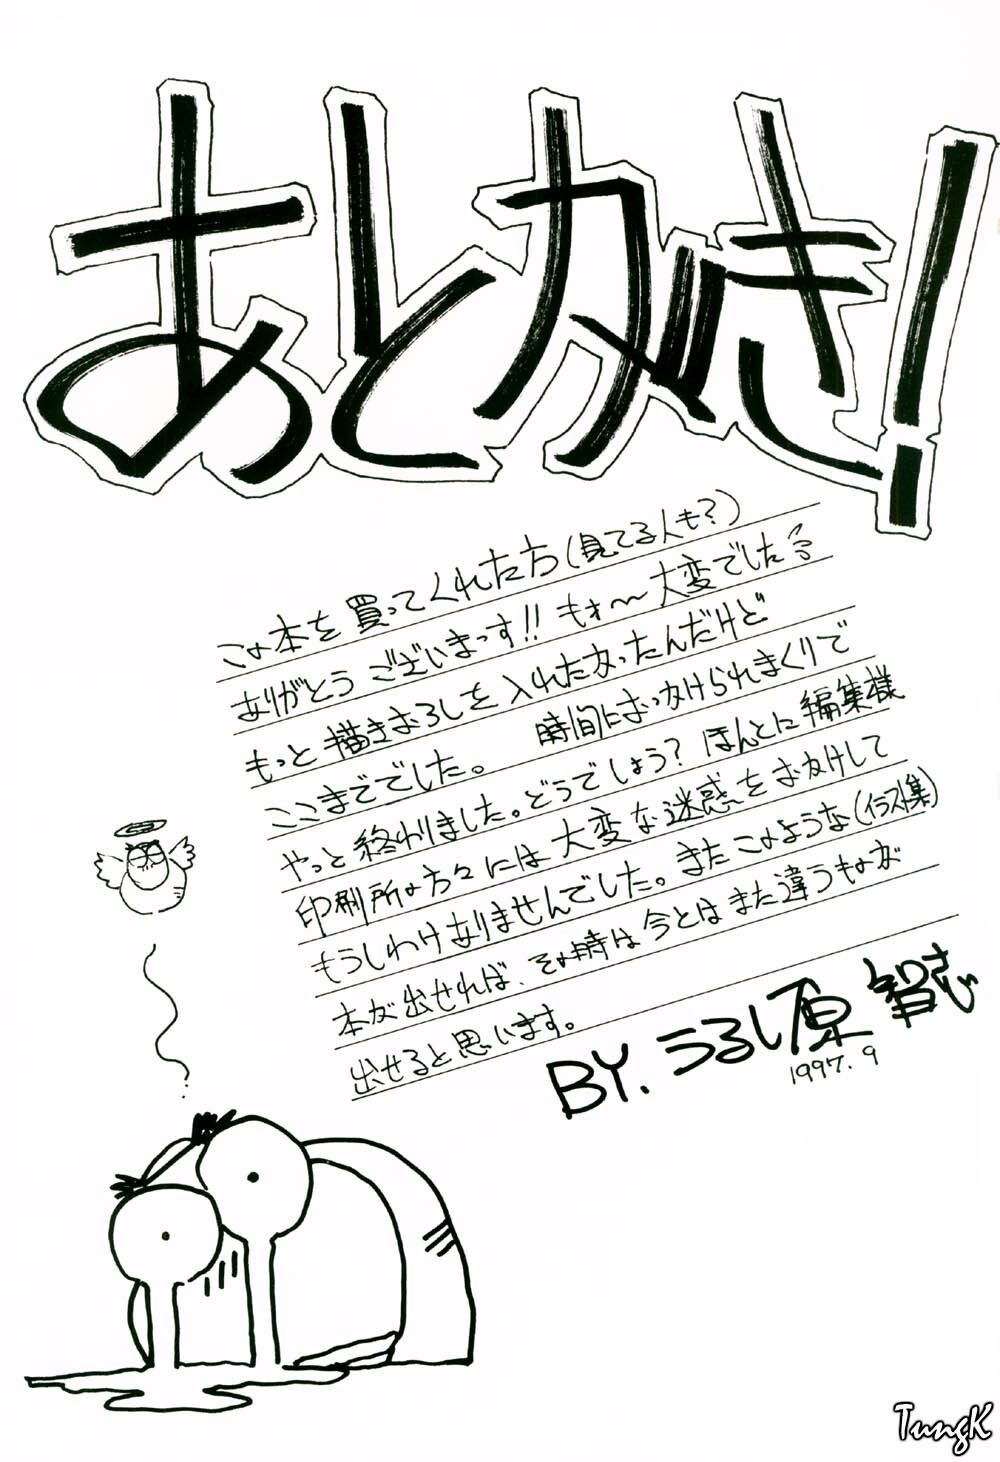 あとがき!
この本を買ってくれた方(見てる人も?)
ありがとうございまっす!!もォ〜大変でした
もっと描きおろしを入れたかったんだけど
ここまででした。 時間におっかけられまくりで
やっと終わりました。どうでしょう?ほんとに編集様
印刷所の方々には大変な迷惑をおかけして
もうしわけありませんでした。またこのような(イラスト集)
本が出せれば、その時は今とはまた違うものが
出せると思います。
BY.うるし原智志
さとし
1997.9
TungK